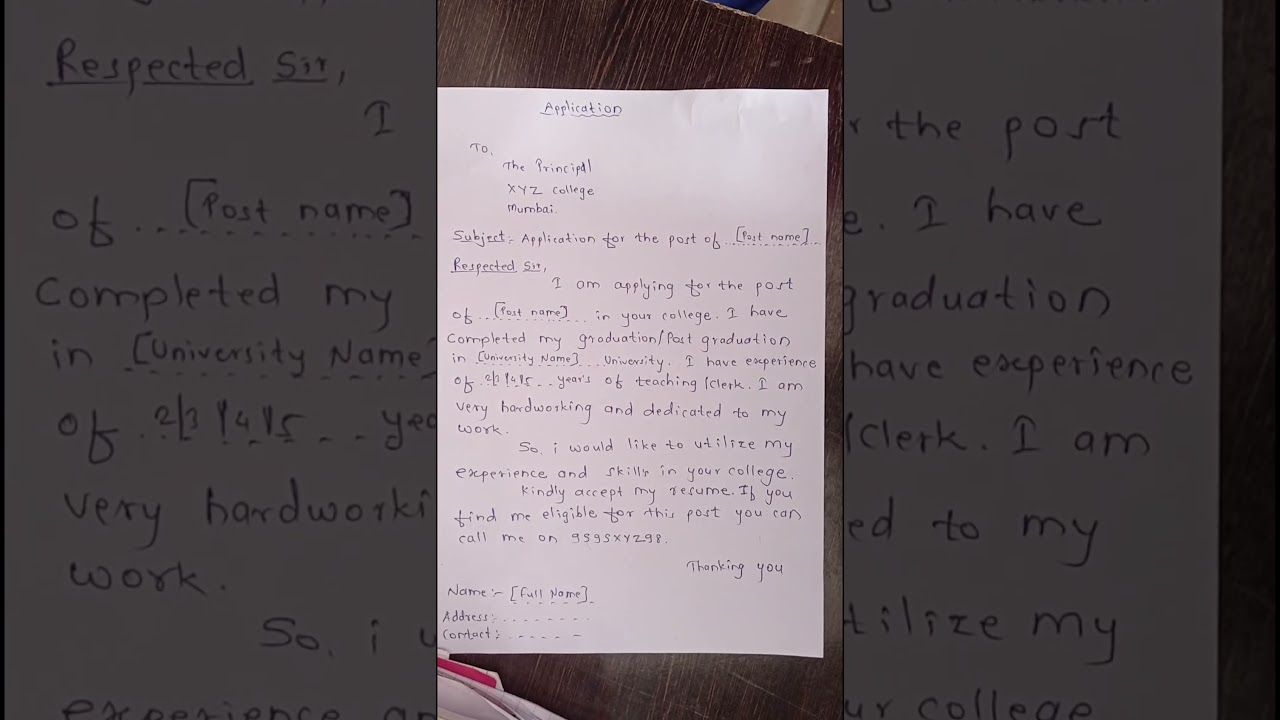 Application
To,
The Principal
XYZ college
Mumbai.
Subject:- Application for the post of ..[Post name]...
Respected Sir,
I am applying for the post
of ...[Post name]... in your college. I have
completed my graduation/Post graduation
in [University Name]... University. I have experience
of .2/3/4/5... year's of teaching/clerk. I am
very hardworking and dedicated to my
work.
So, i would like to utilize my
experience and skills in your college.
Kindly accept my resume. If you
find me eligible for this post you can
call me on 9595XYZ98.
Thanking you
Name:- [Full Name]
Address:- . . . . . . . .
Contact:- . . . . . .